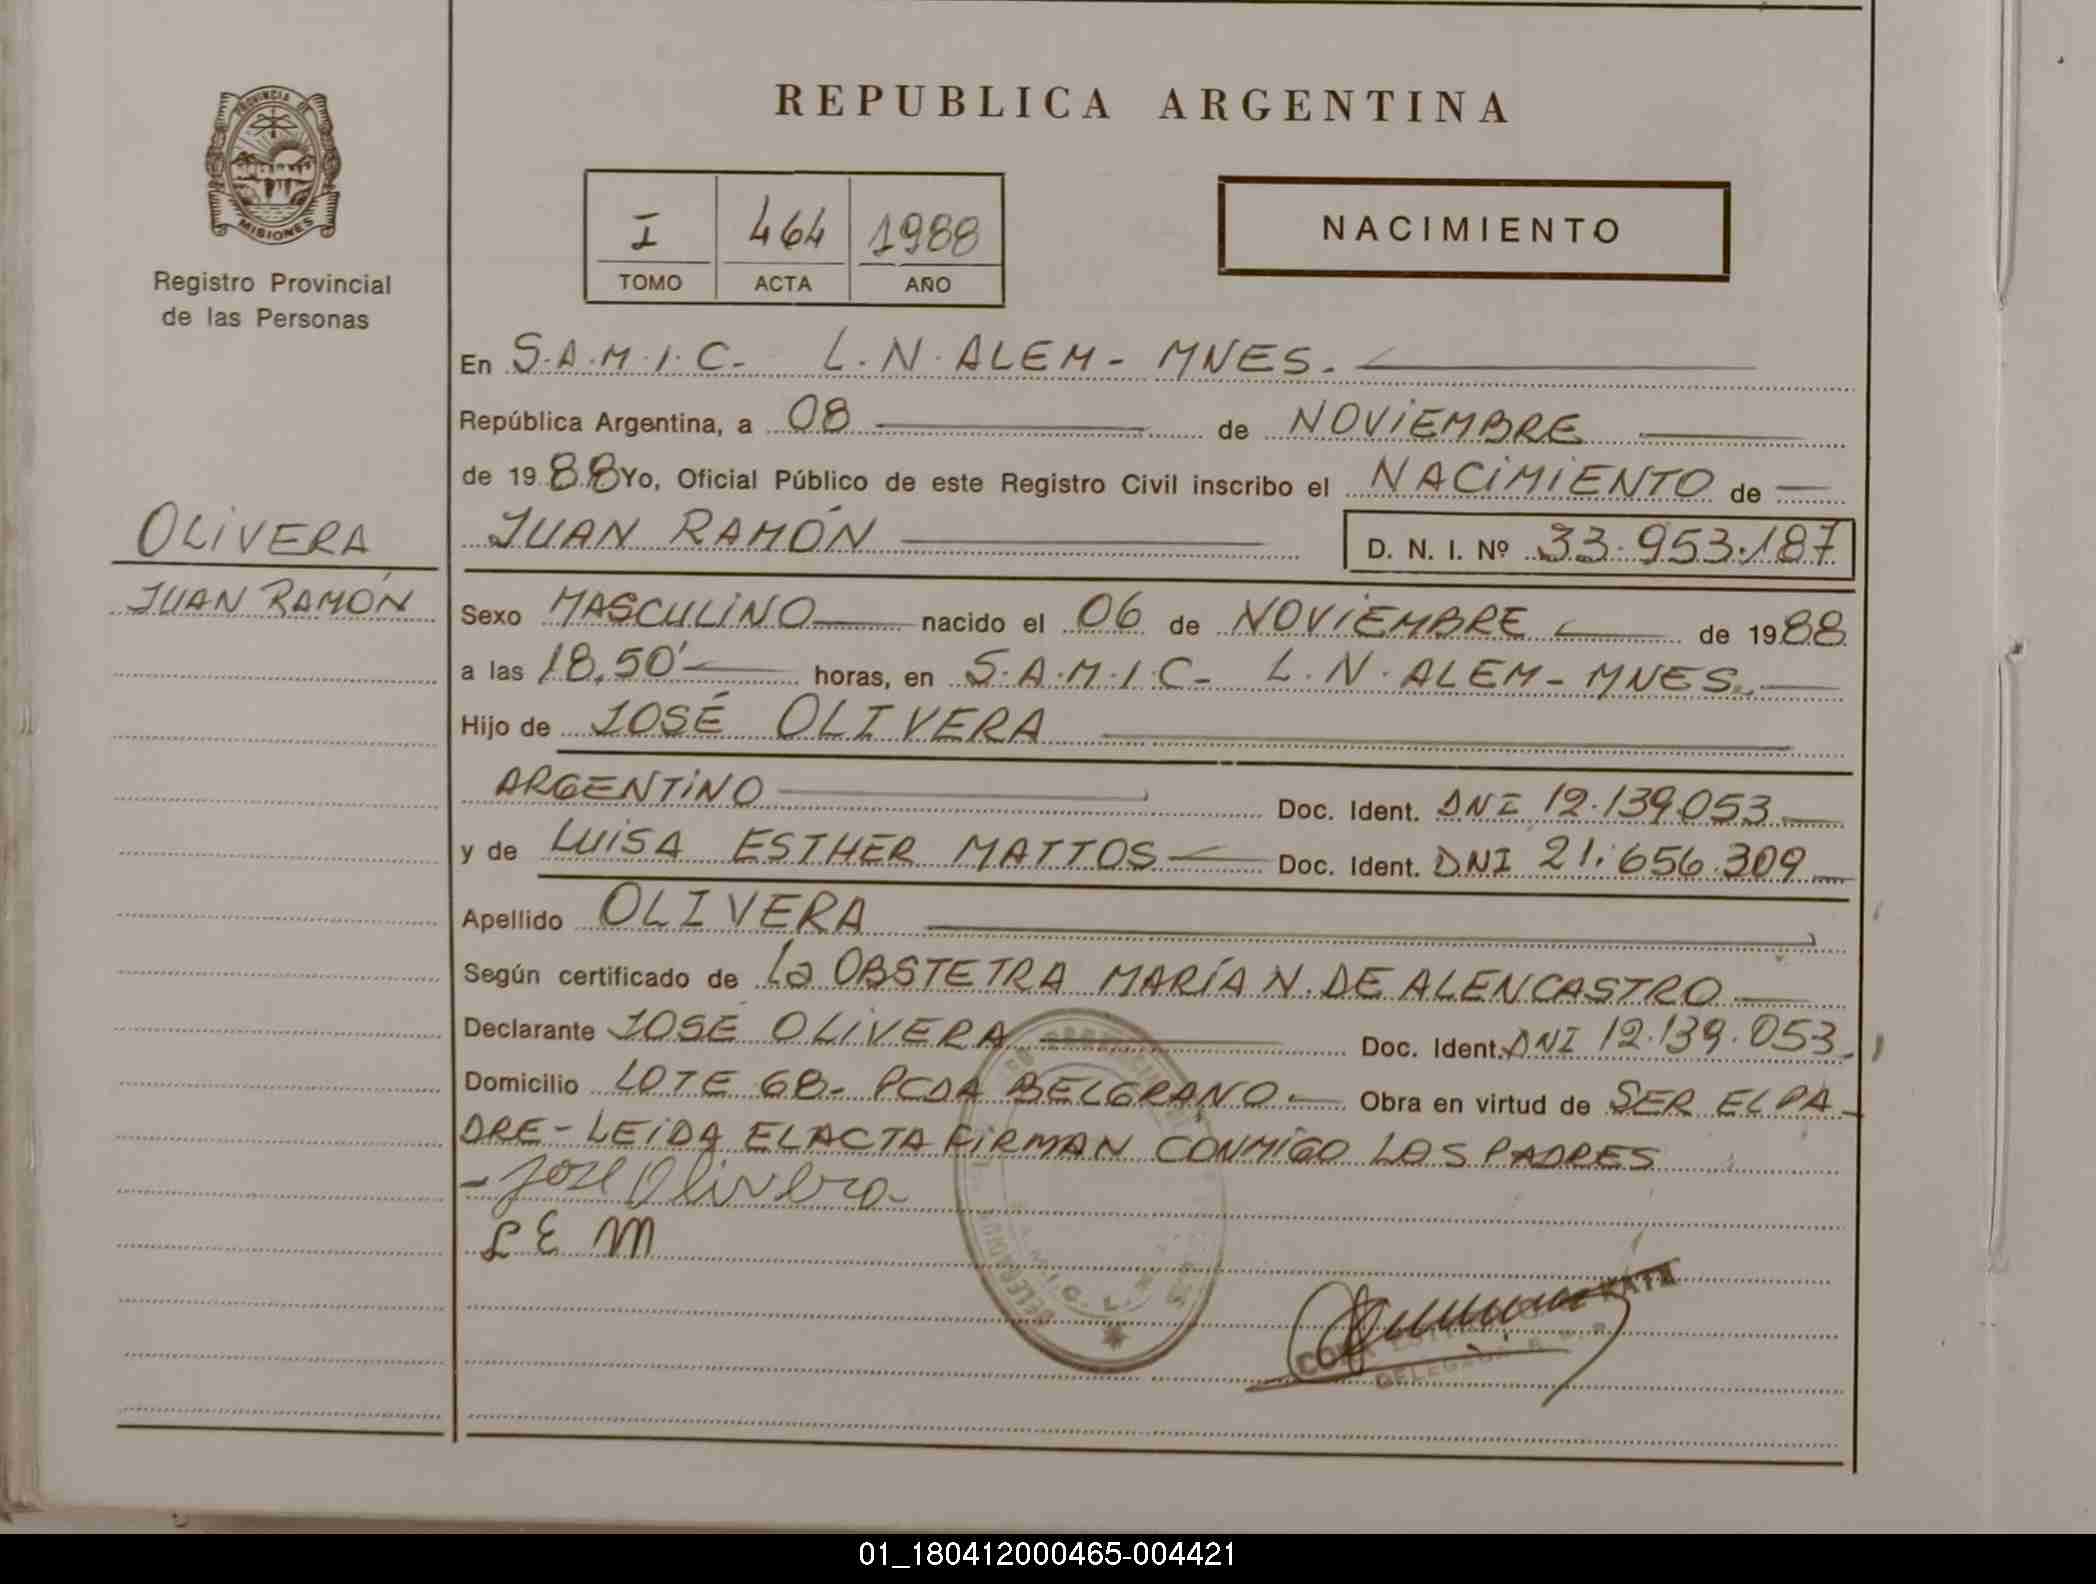 REPUBLICA ARGENTINA
PROVINCIA DE
MISIONES
Registro Provincial
de las Personas
I 464 1988
TOMO ACTA AÑO
NACIMIENTO
En S.A.M.I.C- L.N.ALEM- MNES.
República Argentina, a 08 de NOVIEMBRE
de 1988 Yo, Oficial Público de este Registro Civil inscribo el NACIMIENTO de
JUAN RAMÓN D. N. I. Nº 33.953.187
OLIVERA
JUAN RAMÓN
Sexo MASCULINO nacido el 06 de NOVIEMBRE de 1988
a las 18,50' horas, en S.A.M.I.C- L.N.ALEM- MNES.
Hijo de JOSÉ OLIVERA
ARGENTINO Doc. Ident. DNI 12.139.053
y de LUISA ESTHER MATTOS Doc. Ident. DNI 21.656.309
Apellido OLIVERA
Según certificado de la OBSTETRA MARÍA N. DE ALENCASTRO
Declarante JOSÉ OLIVERA Doc. Ident. DNI 12.139.053.
Domicilio LOTE 68- PCDA BELGRANO- Obra en virtud de SER EL PA-
DRE- LEIDA EL ACTA FIRMAN CONMIGO LOS PADRES
- José Olivera
L E M
S.A.M.I.C. L.N.
01_180412000465-004421